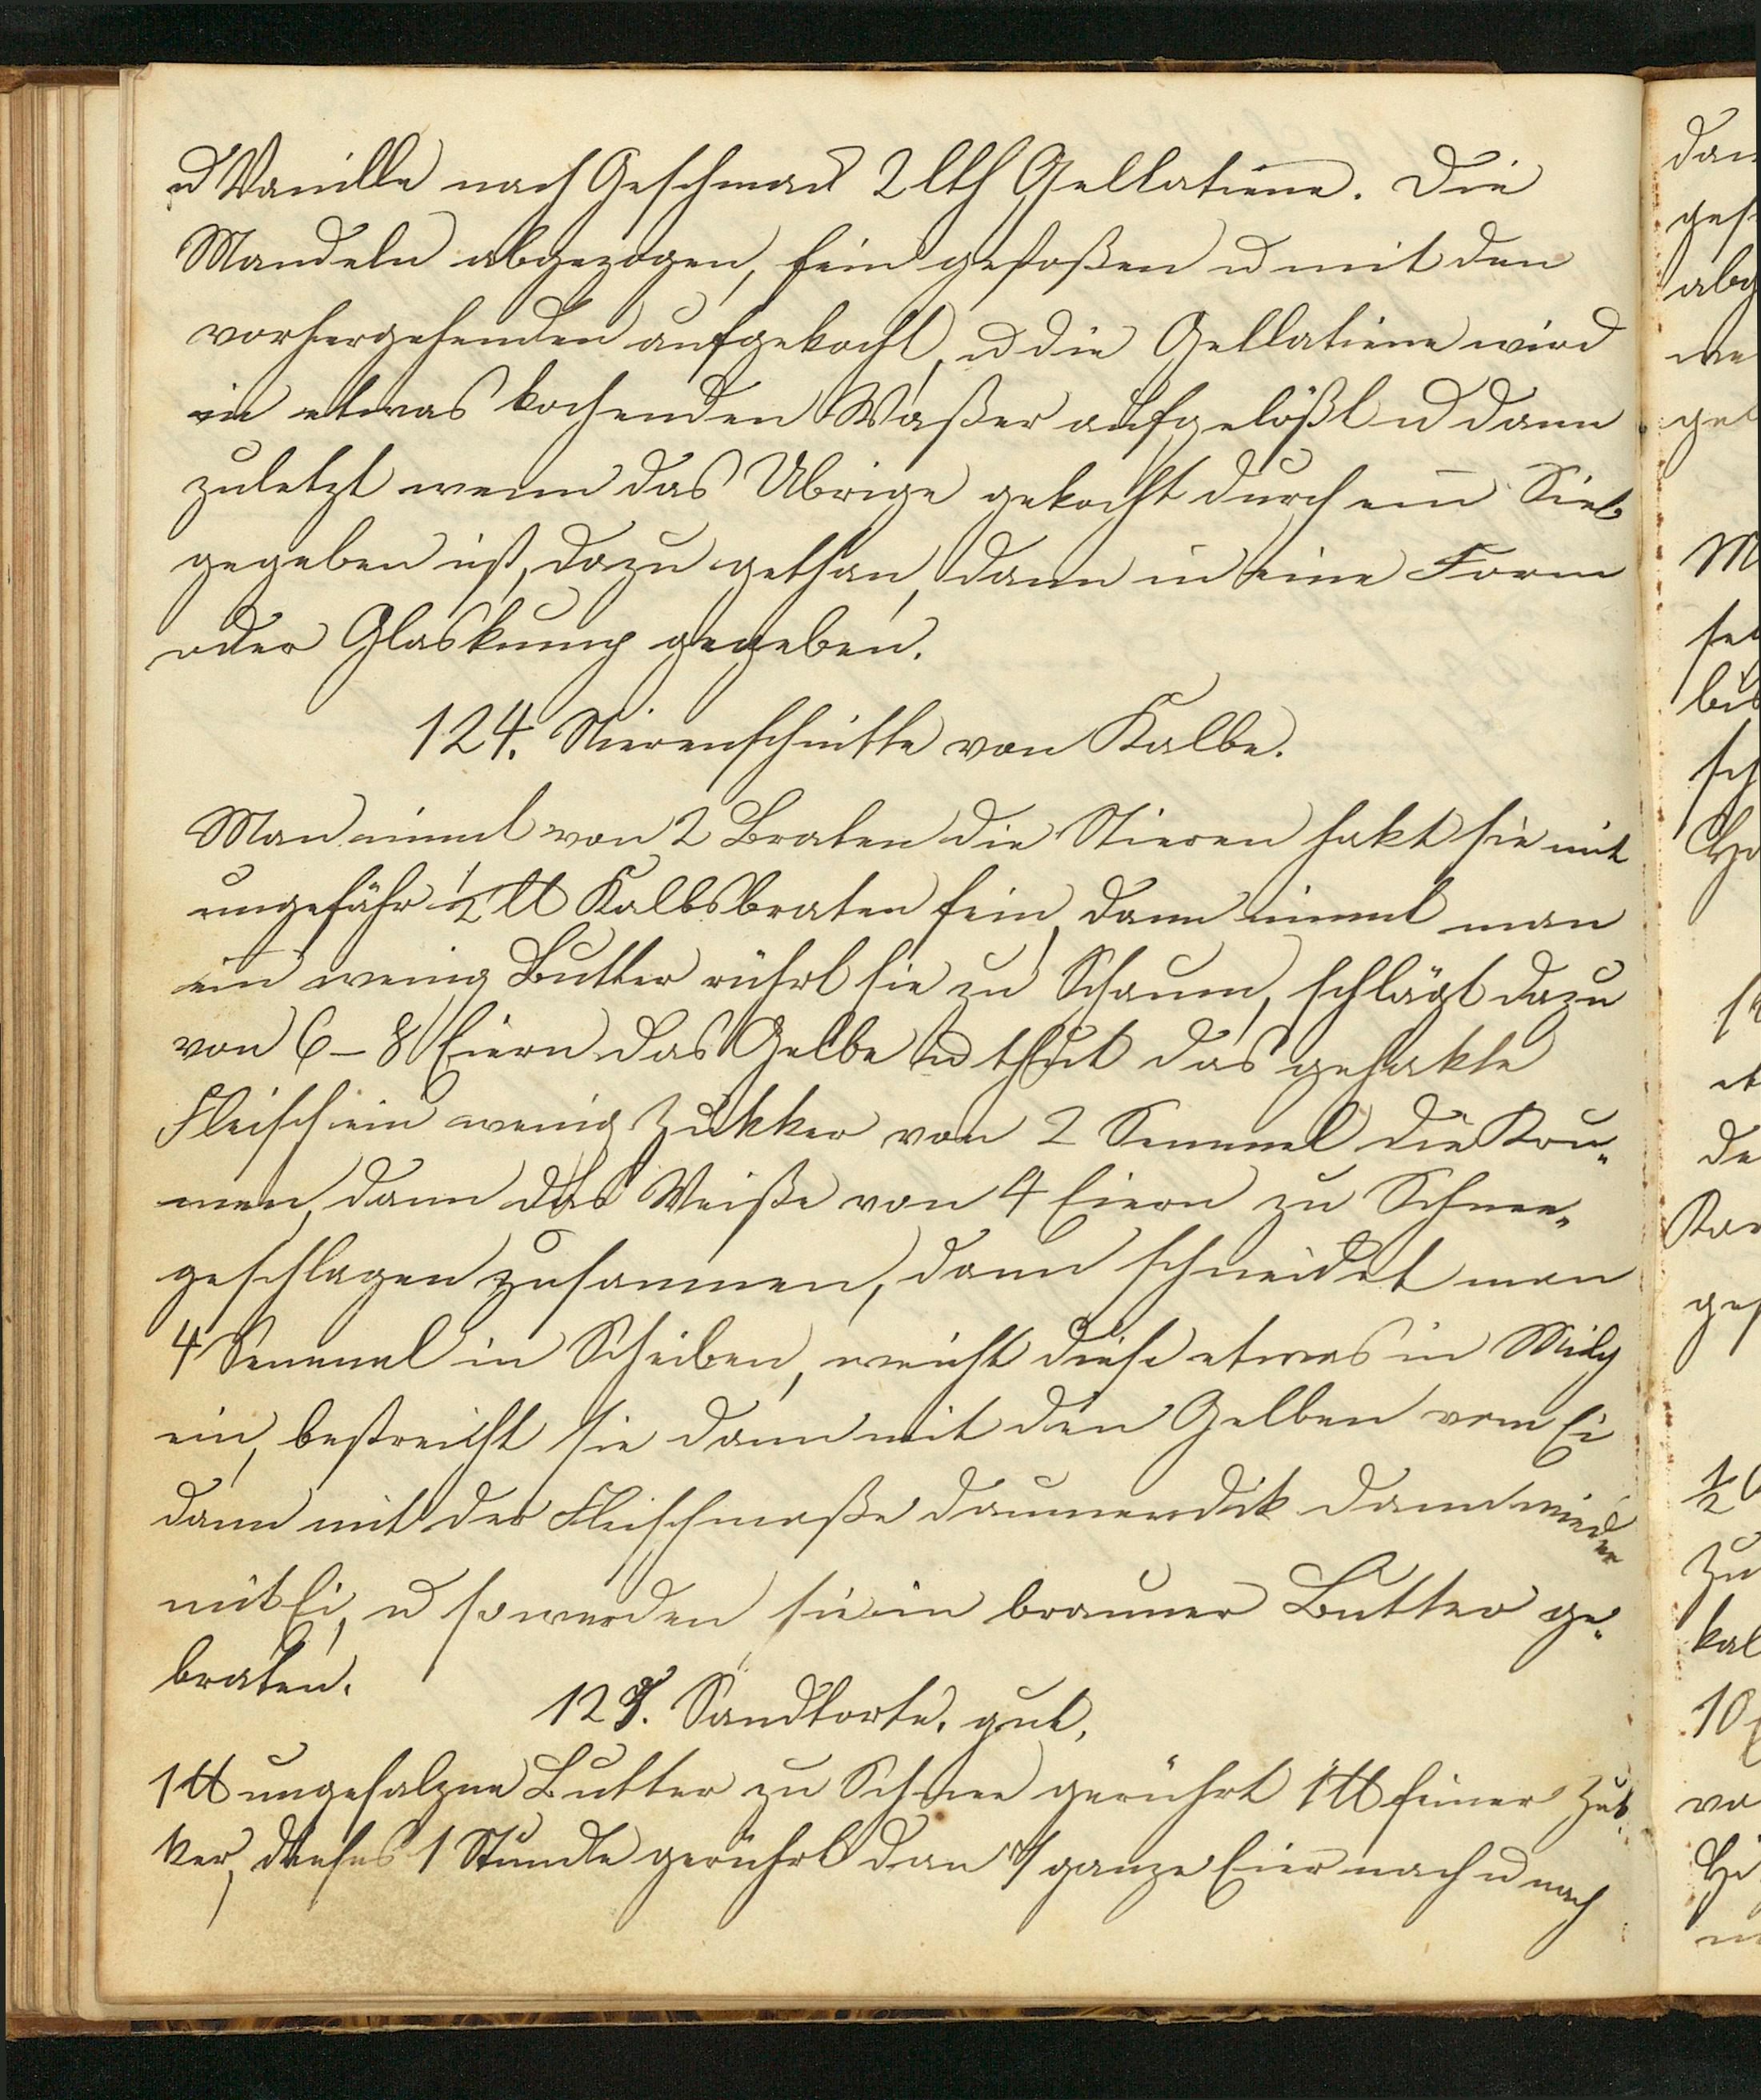 u Vanille nach Geschmack 2 lth Gellatiene. Die
Mandeln abgezogen, fein gestoßen u mit den
vorhergehenden aufgekocht, u die Gellatiene wird
in etwas kochenden Waßer aufgelößt u dann
zuletzt wenn das Ubrige gekocht durch ein Sieb
gegeben ist, dazu gethan, dann in eine Form
oder Glaskump gegeben.
124. Nierenschnitte von Kalbe.
Man nimmt von 2 Braten die Nieren hakt sie mit
ungefähr 1/2 ℔ Kalbsbraten fein, dann nimmt man
ein wenig Butter rührt sie zu Schaum, schlägt dazu
von 6-8 Eiern das Gelbe u thut das gehakte
Fleisch ein wenig Zukker von 2 Semmel die Kru-
men, dann das Weiße von 4 Eiern zu Schnee-
geschlagen zusammen, dann schneidet man
4 Semmel in Scheiben, weicht diese etwas in Milch
ein, bestreicht sie dann mit den Gelben vom Ei
dann mit der Fleischmaße daumendik dann wieder
mit Ei, u so werden sie in brauner Butter ge-
braten.
125. Sandtorte. gut.
1 ℔ ungesalzne Butter zu Schnee gerührt 1 ℔ feiner Zuk-
ker, dieses 1 Stunde gerührt dan ganze Eier nach u nach